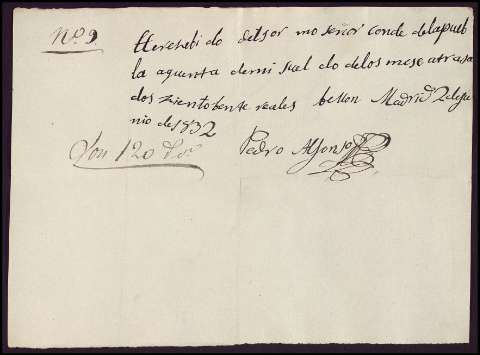 No. 9. He rezebido delsor mo señor conde delapueb
la aquenta demi suel do delos mese atrasa
dos zientobente reales bellon Madrid 2 deju
nio de 1832
Son 120 Rs.
Pedro Alfonso